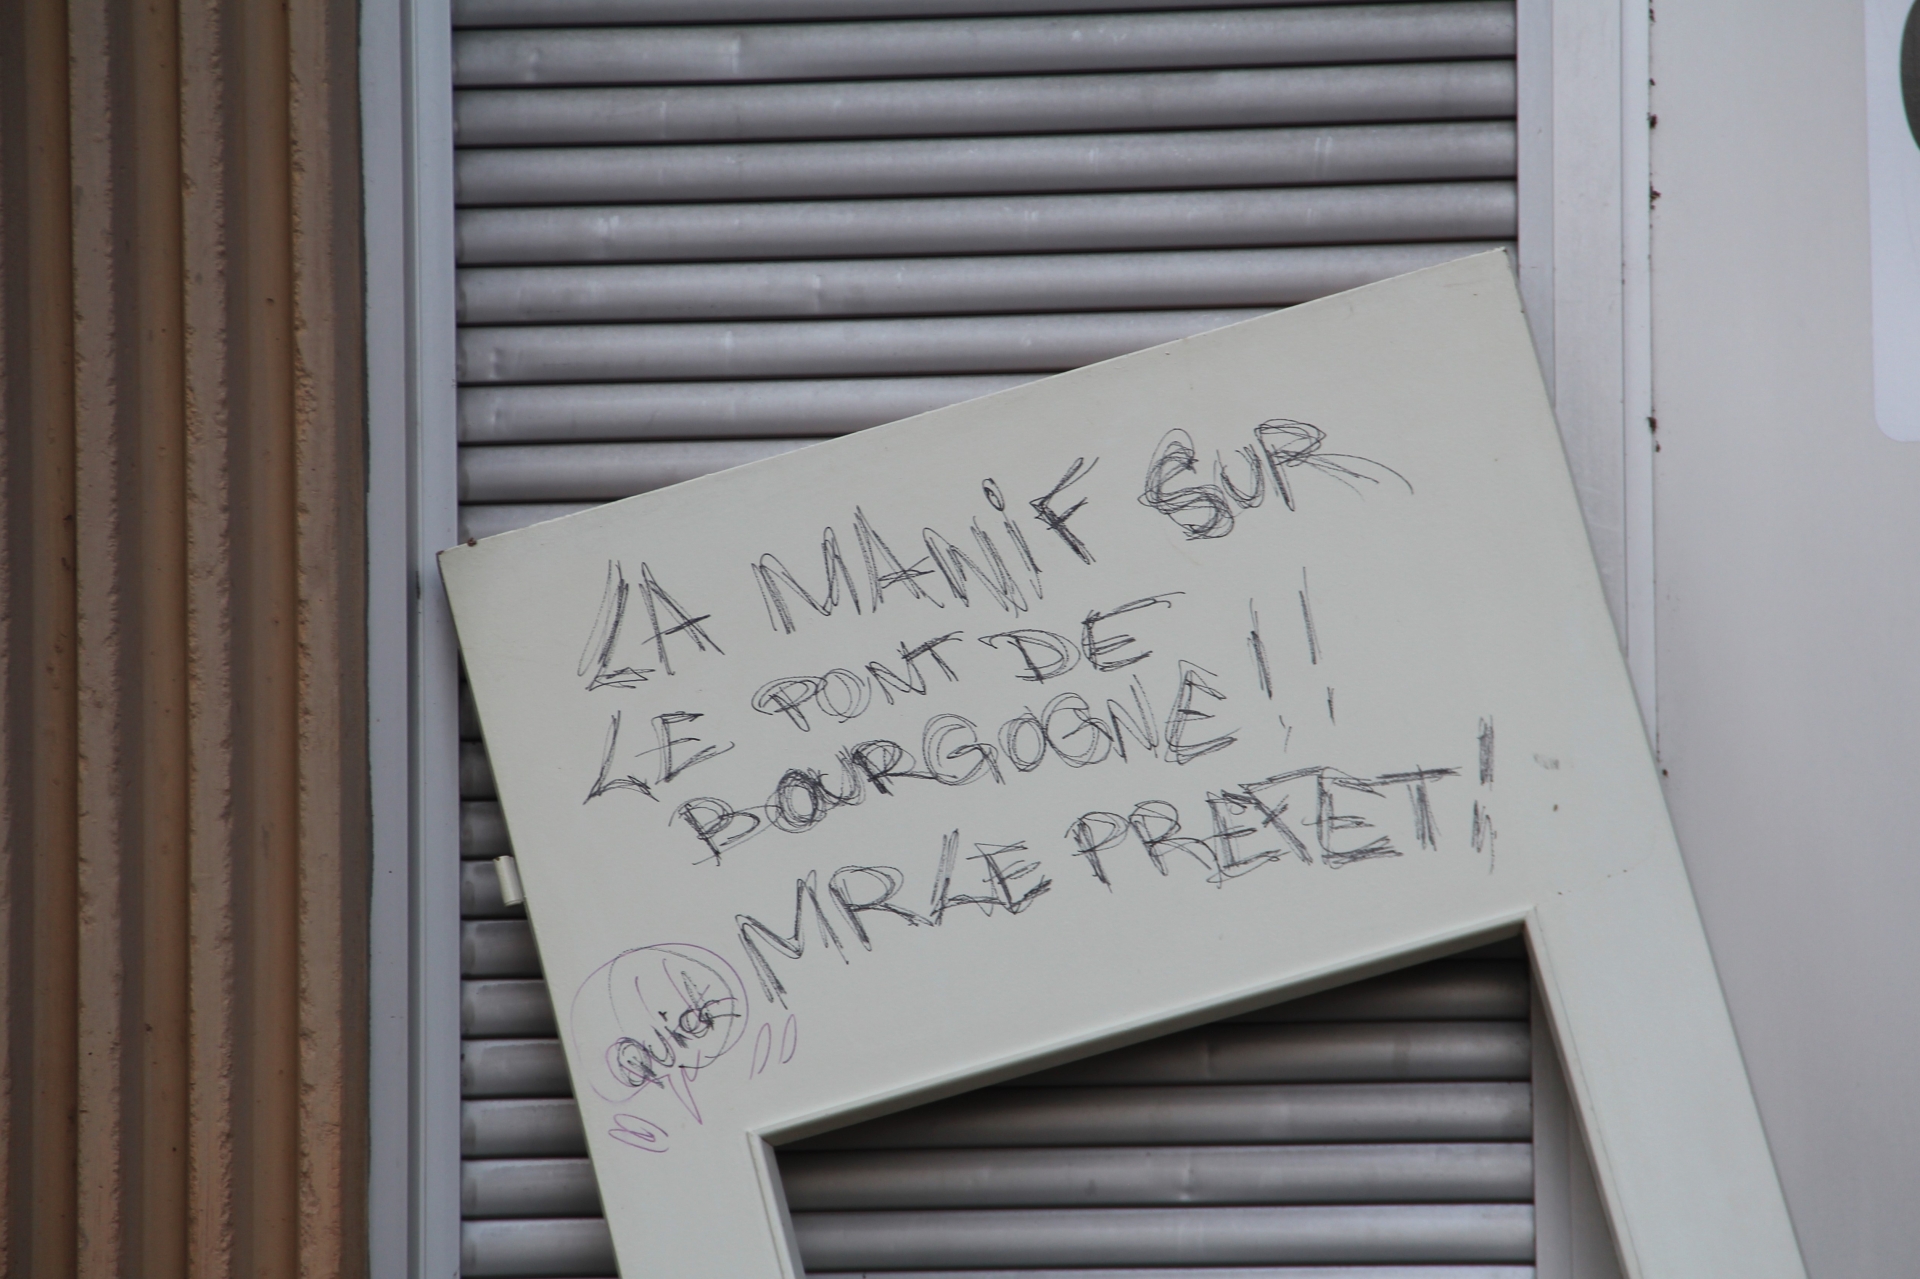 LA MANIF SUR
LE PONT DE
BOURGOGNE!!
MR LE PREFET!
QUICK